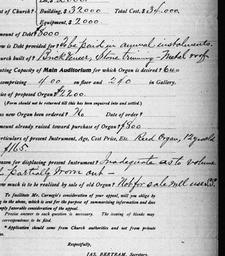 of Church? { Building, $32000 Total Cost, $34,000
Equipment, $2000
Amount of Debt? $5000
is Debt provided for? To be paid in annual instalments.
Church built of? Brick Veneer, Stone trimming - Metal roof
Seating Capacity of Main Auditorium for which Organ is desired? 640
comprising 400 on floor and 240 in Gallery.
Price of proposed Organ? $2200.
(Form should not be returned till this has been enquired into and settled.)
new Organ been Ordered? No Date of order?
Amount already raised toward purchase of Organ? $300
Particulars of present Instrument, Age, Cost Price, Etc. Reed Organ, 12 yrs old
$165.
Reason for displacing present Instrument? Inadequate as to volume
partially worn out -
How much is to be realized by sale of old Organ? Not for sale will use in S.S.
To facilitate Mr. Carnegie's consideration of your appeal, will you oblige by
in the above, which is and for the purpose of summarizing information and does
imply favorable consideration of the appeal.
Precise answer to each question is necessary. The issuing of blanks may
correspondence to be filed.
Application should come from Church authorities and not from private
Respectfully,
JAS. BERTRAM, Secretary.